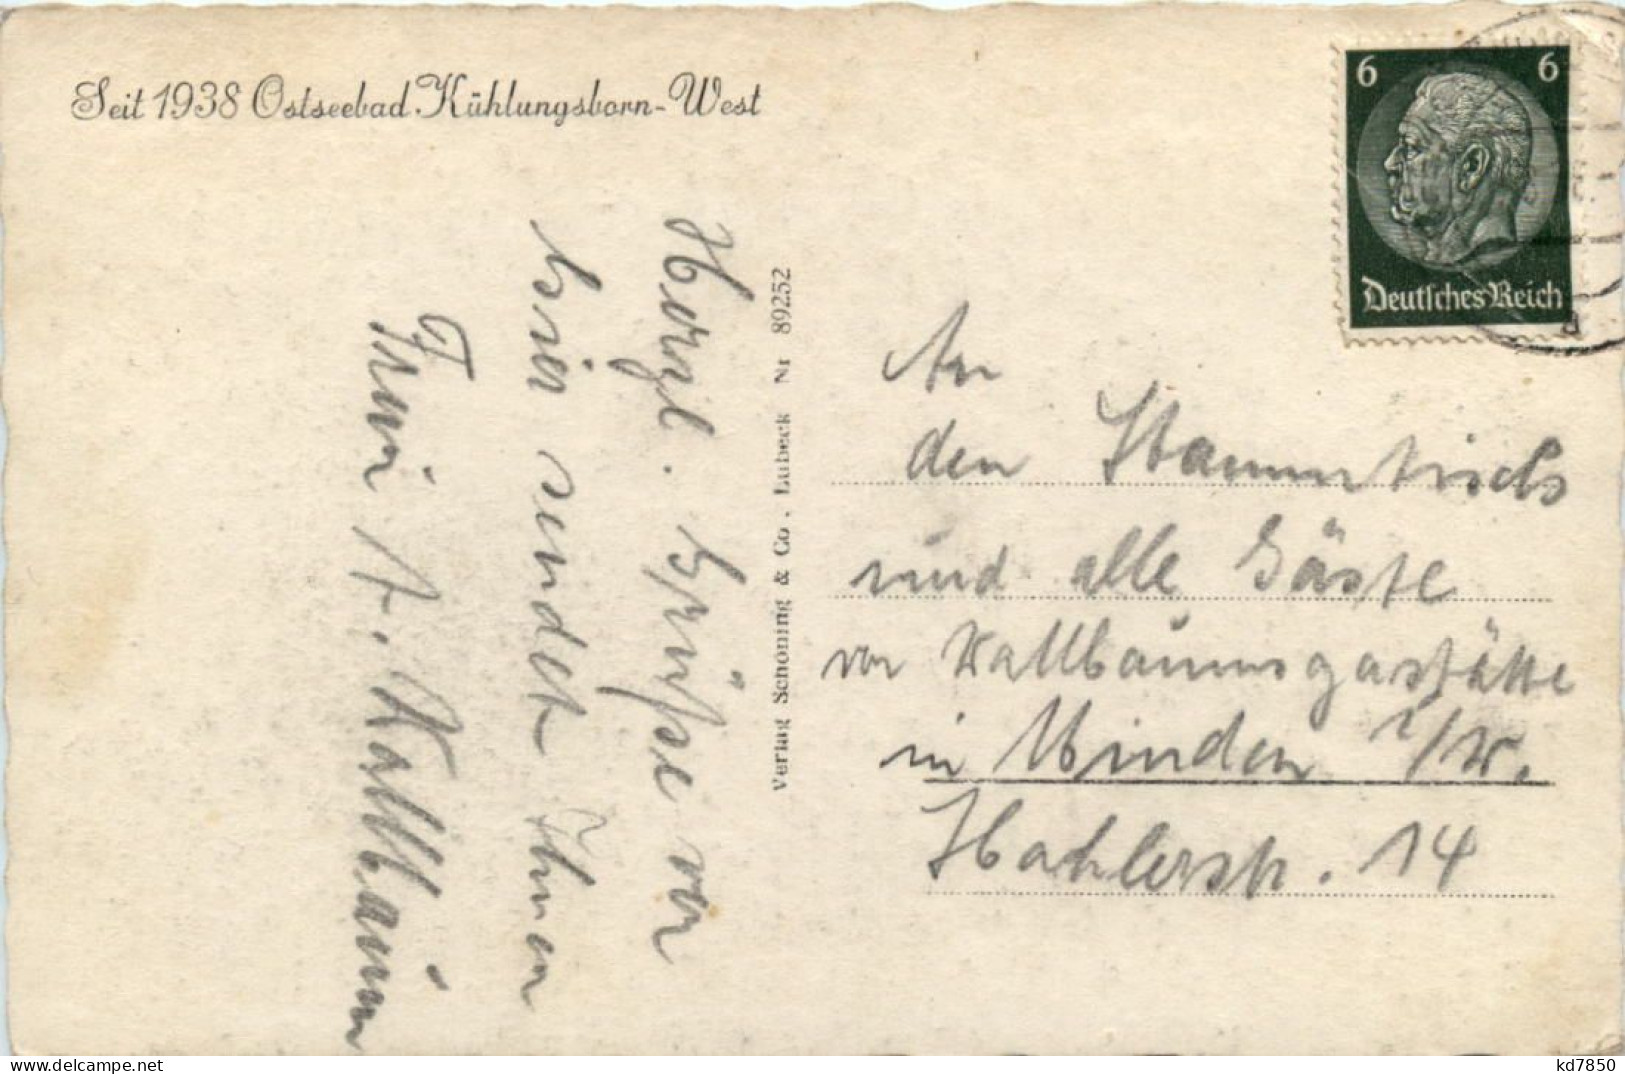 Seit 1938 Ostseebad Kühlungsborn-West
6 6
Deutsches Reich
Herzl. Grüsse von
hier sendet Ihnen
Frau A. Kallbaum
Verlag Schöning & Co. Lübeck Nr 89252
An
den Stammtisch
und alle Gäste
von Kallbaumsgaststätte
in Minden i/W.
Hahlerstr. 14
www.delcampe.net
kd7850